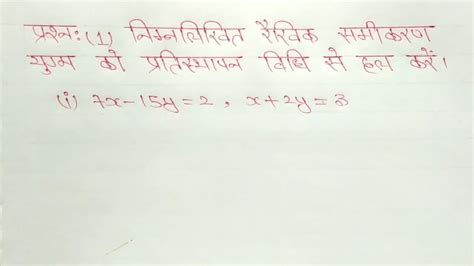 प्रश्न:(1) निम्नलिखित रैखिक समीकरण
युग्म को प्रतिस्थापन विधि से हल करें।
(i) 7x-15y=2, x+2y=3